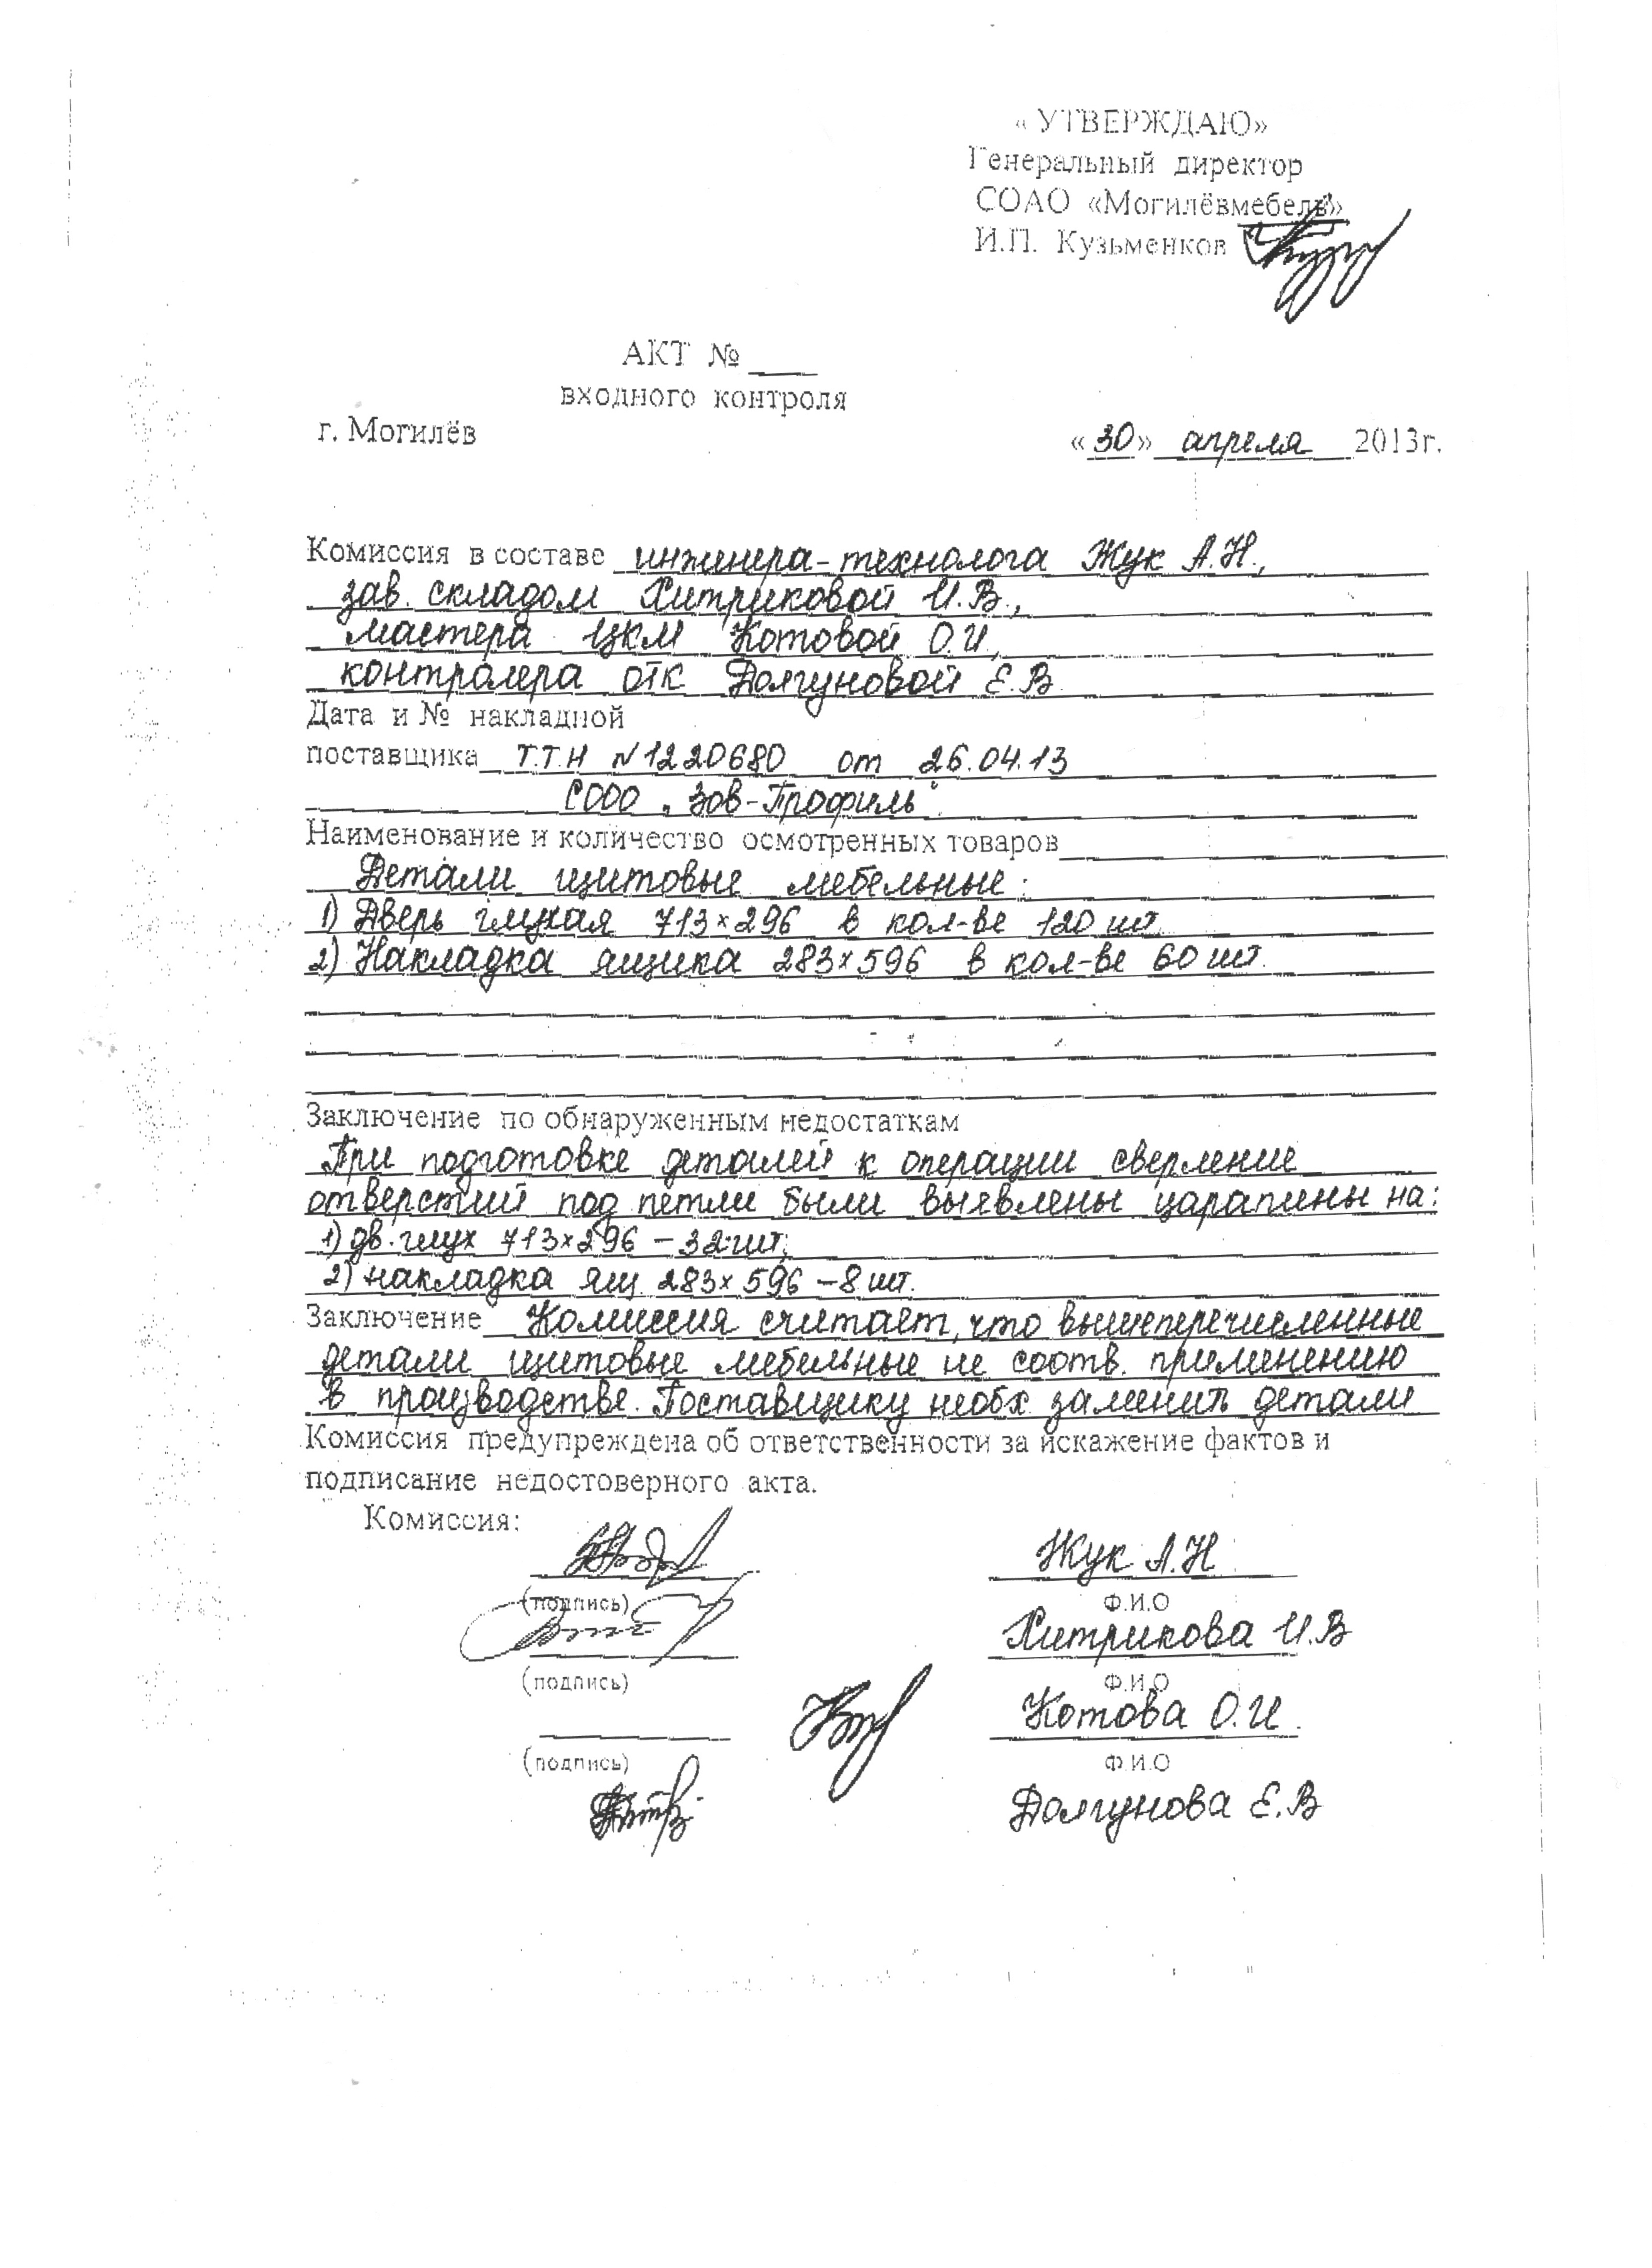 « УТВЕРЖДАЮ»
Генеральный директор
СОАО «Могилёвмебель»
И.П. Кузьменков
АКТ № ___
входного контроля
г. Могилёв
«30» апреля 2013г.
Комиссия в составе инженера-технолога Жук А.Н.,
зав. складом Хитриковой И.В.,
мастера ЦКМ Котовой О.И,
контролера ОТК Долгуновой Е.В
Дата и № накладной
поставщика Т.Т.Н №1220680 от 26.04.13
СООО „Зов-Профиль".
Наименование и количество осмотренных товаров
Детали щитовые мебельные:
1) Дверь глухая 713×296 в кол-ве 120 шт.
2) Накладка ящика 283×596 в кол-ве 60 шт.
Заключение по обнаруженным недостаткам
При подготовке деталей к операции сверление
отверстий под петли были выявлены царапины на:
1) дв. глух 713×296 – 32 шт;
2) накладка ящ 283×596 – 8 шт.
Заключение Комиссия считает, что вышеперечисленные
детали щитовые мебельные не соотв. применению
в производстве. Поставщику необх заменить детали
Комиссия предупреждена об ответственности за искажение фактов и
подписание недостоверного акта.
Комиссия:
Жук А.Н
(подпись) Ф.И.О
Хитрикова И.В
(подпись) Ф.И.О
Котова О.И.
(подпись) Ф.И.О
Долгунова Е.В